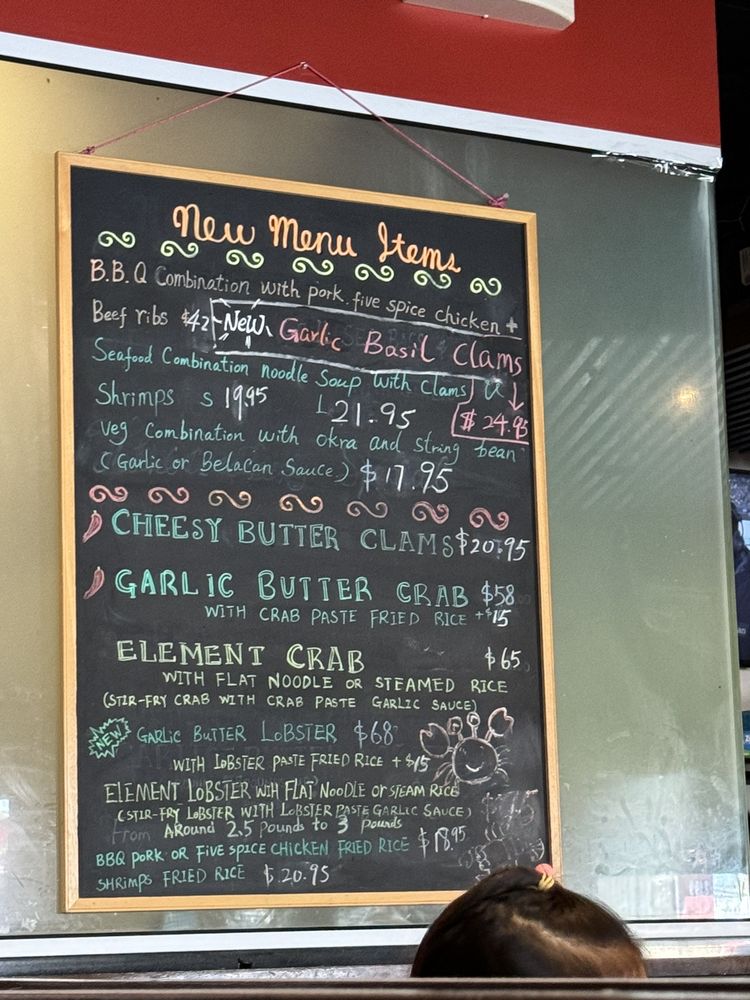 New Menu Items
B.B.Q Combination with pork. five spice chicken +
Beef ribs $42
New Garlic Basil Clams
$24.95
Seafood Combination noodle Soup with Clams
Shrimps S 19.95 L 21.95
Veg Combination with okra and string bean
(Garlic or Belacan Sauce) $17.95
CHEESY BUTTER CLAMS $20.95
GARLIC BUTTER CRAB $58
WITH CRAB PASTE FRIED RICE +$15
ELEMENT CRAB $65
WITH FLAT NOODLE OR STEAMED RICE
(STIR-FRY CRAB WITH CRAB PASTE GARLIC SAUCE)
NEW! GARLIC BUTTER LOBSTER $68
WITH LOBSTER PASTE FRIED RICE +$15
ELEMENT LOBSTER WIH FLAT NOODLE OR STEAM RICE
(STIR-FRY LOBSTER WITH LOBSTER PASTE GARLIC SAUCE)
From Around 2.5 pounds to 3 pounds
BBQ PORK OR FIVE SPICE CHICKEN FRIED RICE $18.95
SHRIMPS FRIED RICE $20.95